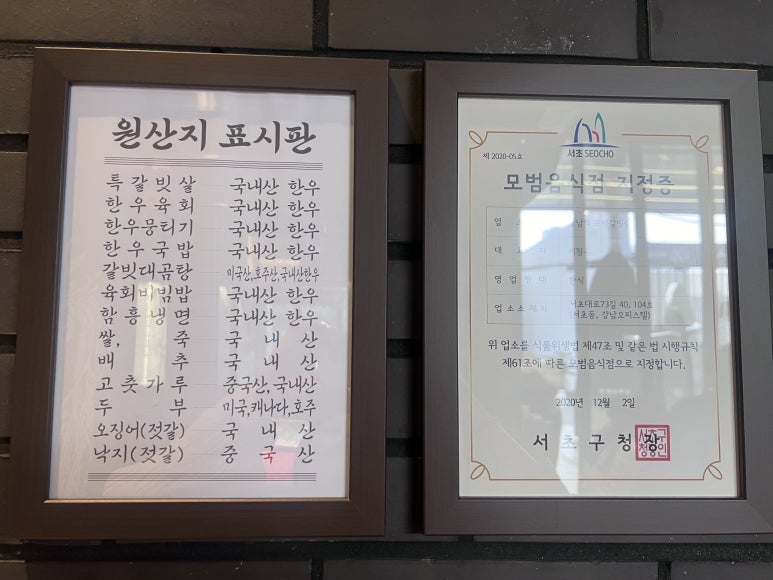 원산지 표시판
특갈빗살 국내산 한우
한우육회 국내산 한우
한우뭉티기 국내산 한우
한우국밥 국내산 한우
갈빗대곰탕 미국산,호주산,국내산한우
육회비빔밥 국내산 한우
함흥냉면 국내산 한우
쌀, 죽 국내산
배추 국내산
고춧가루 중국산,국내산
두부 미국,캐나다,호주
오징어(젓갈) 국내산
낙지(젓갈) 중국산
서초 SEOCHO
제 2020-05호
모범음식점 지정증
업
대표
영업형태 한식
업소소재지 서초대로73길 40, 104호
(서초동, 강남오피스텔)
위 업소를 식품위생법 제47조 및 같은 법 시행규칙
제61조에 따른 모범음식점으로 지정합니다.
2020년 12월 2일
서초구청장
서초구
청장인